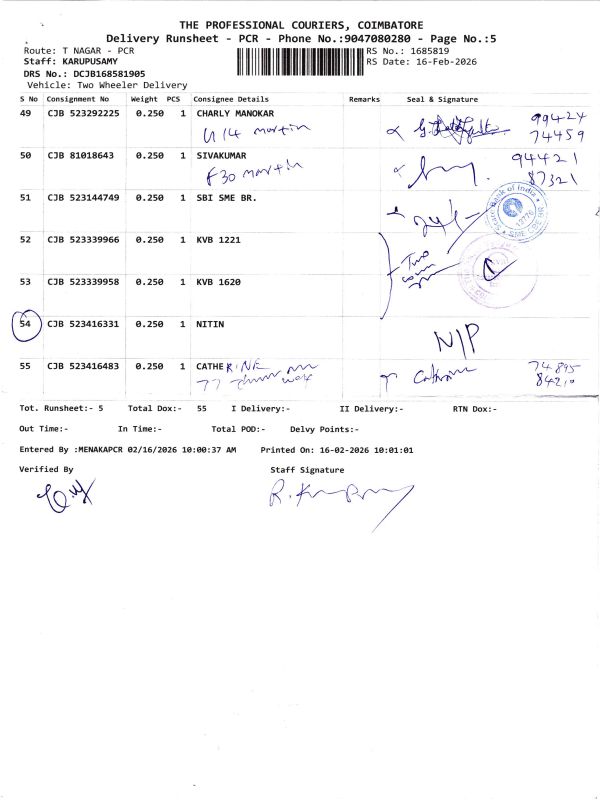 THE PROFESSIONAL COURIERS, COIMBATORE
Delivery Runsheet - PCR - Phone No.:9047080280 - Page No.:5
Route: T NAGAR - PCR RS No.: 1685819
Staff: KARUPUSAMY RS Date: 16-Feb-2026
DRS No.: DCJB168581905
Vehicle: Two Wheeler Delivery
S No Consignment No Weight PCS Consignee Details Remarks Seal & Signature
49 CJB 523292225 0.250 1 CHARLY MANOKAR 99424
U14 martin 74459
50 CJB 81018643 0.250 1 SIVAKUMAR 94421
F30 martin 87321
51 CJB 523144749 0.250 1 SBI SME BR.
State Bank of India
52 CJB 523339966 0.250 1 KVB 1221
Two
53 CJB 523339958 0.250 1 KVB 1620
54 CJB 523416331 0.250 1 NITIN N/P
55 CJB 523416483 0.250 1 CATHERINE Catherine 74895
77 84210
Tot. Runsheet:- 5 Total Dox:- 55 I Delivery:- II Delivery:- RTN Dox:-
Out Time:- In Time:- Total POD:- Delvy Points:-
Entered By :MENAKAPCR 02/16/2026 10:00:37 AM Printed On: 16-02-2026 10:01:01
Verified By Staff Signature